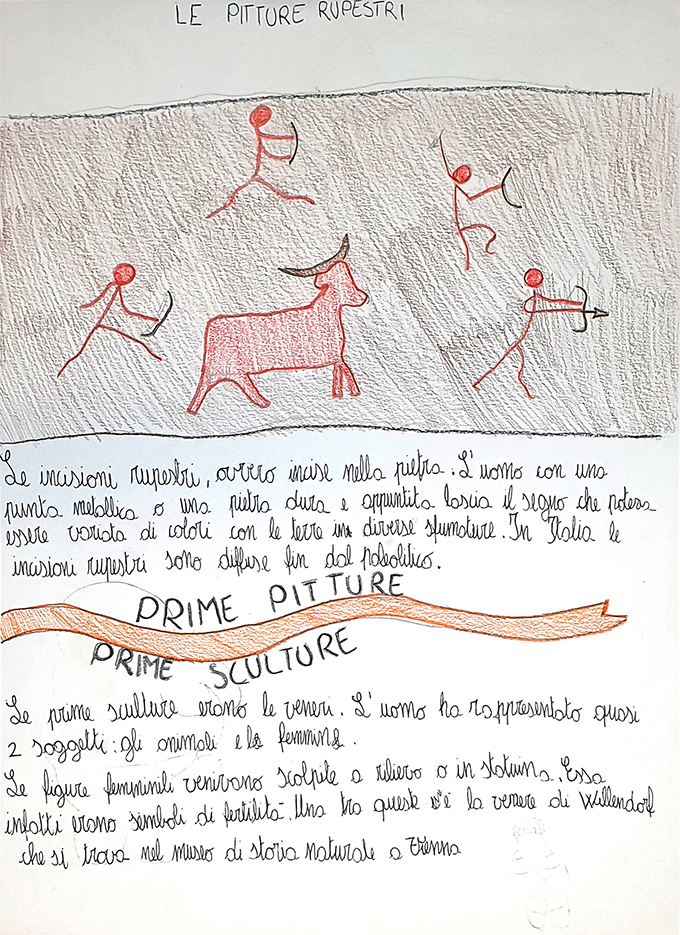 LE PITTURE RUPESTRI
Le incisioni rupestri, ovvero incise nella pietra. L'uomo con una
punta metallica o una pietra dura e appuntita lascia il segno che poteva
essere variata di colori con le terre in diverse sfumature. In Italia le
incisioni rupestri sono diffuse fin dal paleolitico.
PRIME PITTURE
PRIME SCULTURE
Le prime sculture erano le veneri. L'uomo ha rappresentato quasi
2 soggetti: gli animali e la femmina.
Le figure femminili venivano scolpite a rilievo o in statuina. Essa
infatti erano semboli di fertilità. Una tra queste c'è la venere di Willendorf
che si trova nel museo di storia naturale a Vienna